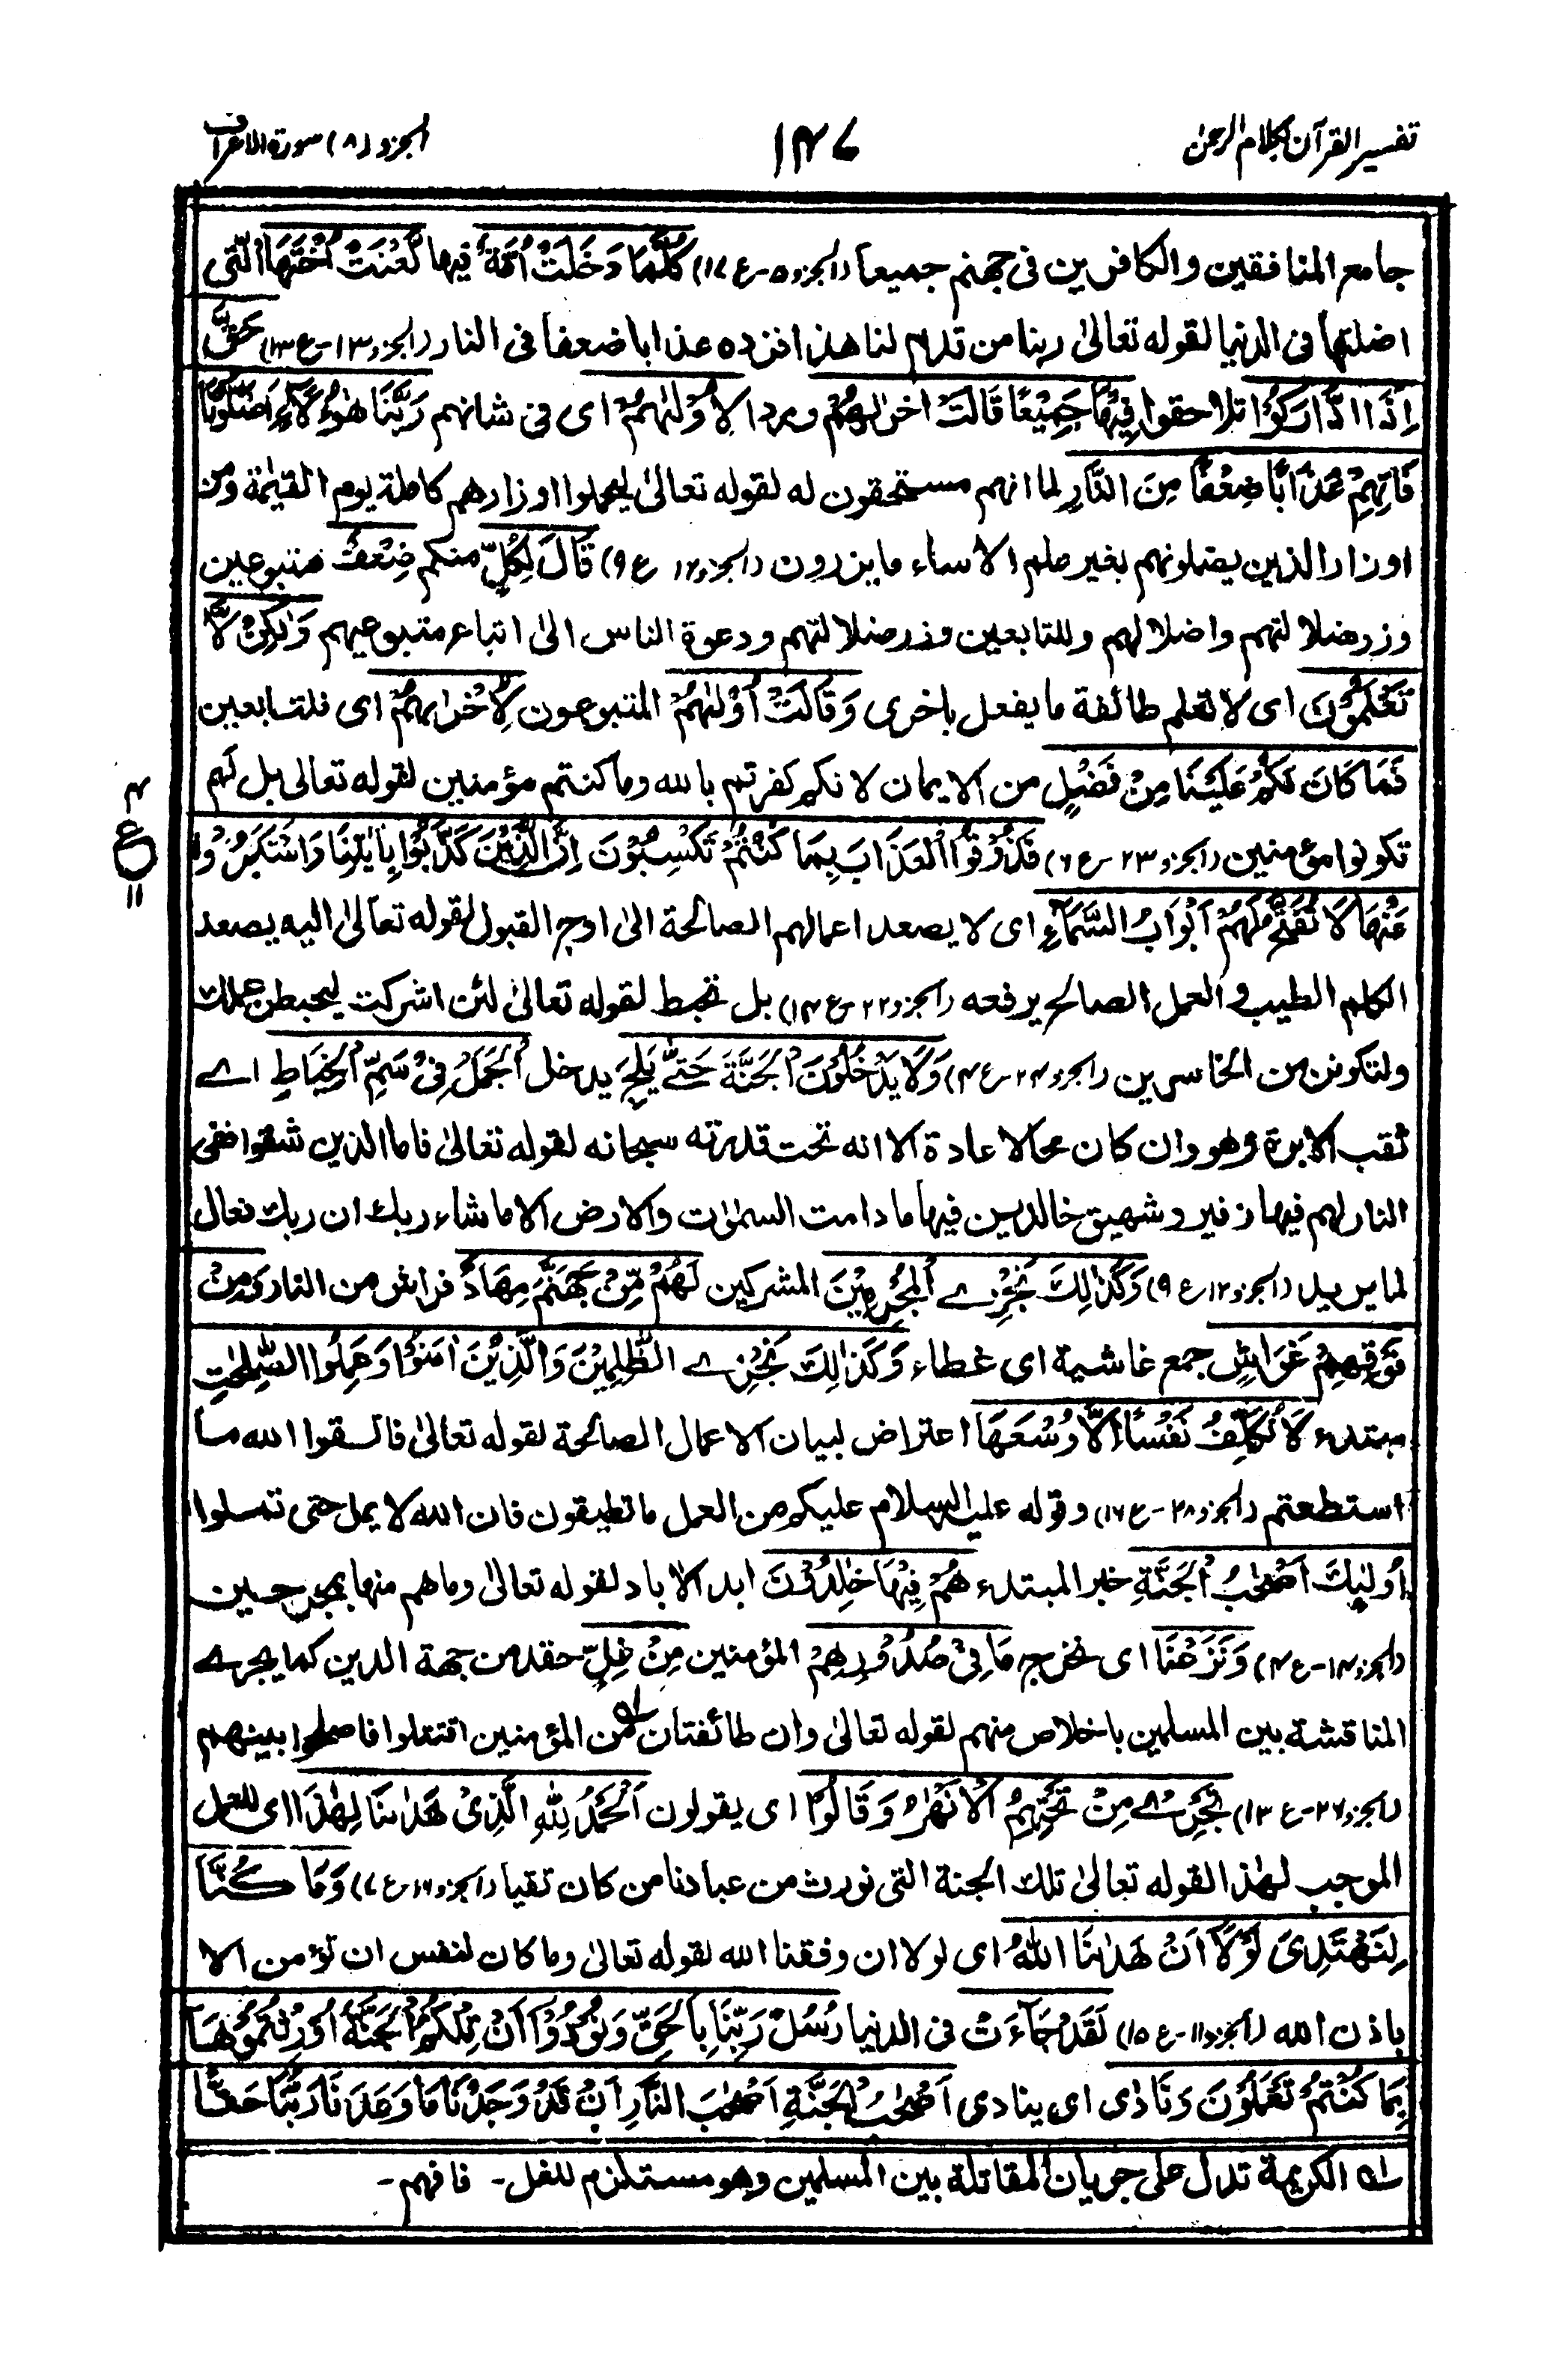 تفسير القرآن بكلام الرحمن
١٤٧
الجزو (٨) سورة الاعراف
جامع المنافقين والكافرين فى جهنم جميعا (الجزو ٥-ع ١٧) كُلَّمَا دَخَلَتْ اُمَّةٌ فيها لَّعَنَتْ اُخْتَهَا التى
اضلتها فى الدنيا لقوله تعالىٰ ربنا من قدم لنا هذا فزده عذابا ضعفا فى النار (الجزو ٢٣-ع ١٣) حَتّٰى
اِذَا ادَّارَكُوْا تلاحقوا فِيْهَا جَمِيْعًا قَالَتْ اخرٰىهُمْ ورد الِاُوْلٰىهُمْ اى فى شانهم رَبَّنَا هٰؤُلَآءِ اَضَلُّوْنَا
فَاٰتِهِمْ عَذَابًا ضِعْفًا مِنَ النَّارِ لما انهم مستحقون له لقوله تعالىٰ ليحملوا اوزارهم كاملة يوم القيٰمة ومن
اوزار الذين يضلونهم بغير علم الا ساء ما يزرون (الجزو ١٤ ع ٩) قَالَ لِكُلٍّ منكم ضِعْفٌ متبوعين
وزر ضلالتهم واضلالهم وللتابعين وزر ضلالتهم ودعوة الناس الىٰ اتباع متبوعيهم وَلٰكِنْ لَّا
تَعْلَمُوْنَ اى لا تعلم طائفة ما يفعل باخرى وَقَالَتْ اُوْلٰىهُمْ المتبوعون لِاُخْرٰىهُمْ اى للتابعين
فَمَا كَانَ لَكُمْ عَلَيْنَا مِنْ فَضْلٍ من الايمان لانكم كفرتم بالله وما كنتم مؤمنين لقوله تعالى بل لم
تكونوا مؤمنين (الجزو ٢٣-ع ٦) فَذُوْقُوا الْعَذَابَ بِمَا كُنْتُمْ تَكْسِبُوْنَ اِنَّ الَّذِيْنَ كَذَّبُوْا بِاٰيٰتِنَا وَاسْتَكْبَرُوْا
عَنْهَا لَا تُفَتَّحُ لَهُمْ اَبْوَابُ السَّمَآءِ اى لا يصعد اعمالهم الصالحة الىٰ اوج القبول لقوله تعالىٰ اليه يصعد
الكلم الطيب والعمل الصالح يرفعه (الجزو ٢٢-ع ١٤) بل تحبط لقوله تعالىٰ لئن اشركت ليحبطن عملك
ولتكونن من الخاسرين (الجزو ٢٤-ع ٤) وَلَا يَدْخُلُوْنَ الْجَنَّةَ حَتّٰى يَلِجَ يدخل الْجَمَلُ فِىْ سَمِّ الْخِيَاطِ اے
ثقب الابرة وهو وان كان محالا عادة الا انه تحت قدرته سبحانه لقوله تعالىٰ فاما الذين شقوا ففى
النار لهم فيها زفير وشهيق خالدين فيها ما دامت السمٰوٰت والارض الا ما شاء ربك ان ربك فعال
لما يريد (الجزو ١٢ ع ٩) وَكَذٰلِكَ نَجْزِے الْمُجْرِمِيْنَ المشركين لَهُمْ مِّنْ جَهَنَّمَ مِهَادٌ فراش من النار وَمِنْ
فَوْقِهِمْ غَوَاشٍ جمع غاشية اى غطاء وَكَذٰلِكَ نَجْزِے الظّٰلِمِيْنَ وَالَّذِيْنَ اٰمَنُوْا وَعَمِلُوا الصّٰلِحٰتِ
مبتدء لَا نُكَلِّفُ نَفْسًا اِلَّا وُسْعَهَا اعتراض لبيان الاعمال الصالحة لقوله تعالىٰ فاتقوا الله ما
استطعتم (الجزو ٢٨-ع ١٦) وقوله عليه السلام عليكم من العمل ما تطيقون فان الله لا يمل حتى تملوا
اُولٰٓئِكَ اَصْحٰبُ الْجَنَّةِ خبر المبتدء هُمْ فِيْهَا خٰلِدُوْنَ ابد الاباد لقوله تعالىٰ وما هم منها بمخرجين
(الجزو ١٤-ع ٤) وَنَزَعْنَا اى نخرج مَا فِىْ صُدُوْرِهِمْ المؤمنين مِنْ غِلٍّ حقد من جهة الدين كما يجرے
المناقشة بين المسلمين باخلاص منهم لقوله تعالىٰ وان طائفتان ١ۿ من المؤمنين اقتتلوا فاصلحوا بينهم
(الجزو ٢٦-ع ١٣) تَجْرِے مِنْ تَحْتِهِمُ الْاَنْهٰرُ وَقَالُوْا اى يقولون اَلْحَمْدُ لِلّٰهِ الَّذِىْ هَدٰىنَا لِهٰذَا اى للعمل
الموجب لهٰذا لقوله تعالىٰ تلك الجنة التى نورث من عبادنا من كان تقيا (الجزو ١٦-ع ٧) وَمَا كُنَّا
لِنَهْتَدِىَ لَوْلَآ اَنْ هَدٰىنَا اللّٰهُ اى لولا ان وفقنا الله لقوله تعالىٰ وما كان لنفس ان تؤمن الا
باذن الله (الجزو ١١-ع ١٥) لَقَدْ جَآءَتْ فى الدنيا رُسُلُ رَبِّنَا بِالْحَقِّ وَنُوْدُوْٓا اَنْ تِلْكُمُ الْجَنَّةُ اُوْرِثْتُمُوْهَا
بِمَا كُنْتُمْ تَعْمَلُوْنَ وَنَادٰى اى ينادى اَصْحٰبُ الْجَنَّةِ اَصْحٰبَ النَّارِ اَنْ قَدْ وَجَدْنَا مَا وَعَدَنَا رَبُّنَا حَقًّا
١ۿ الكريمة تدل على جريان المقاتلة بين المسلمين وهو مستلزم للغل - فافهم -
٤
ع
١١